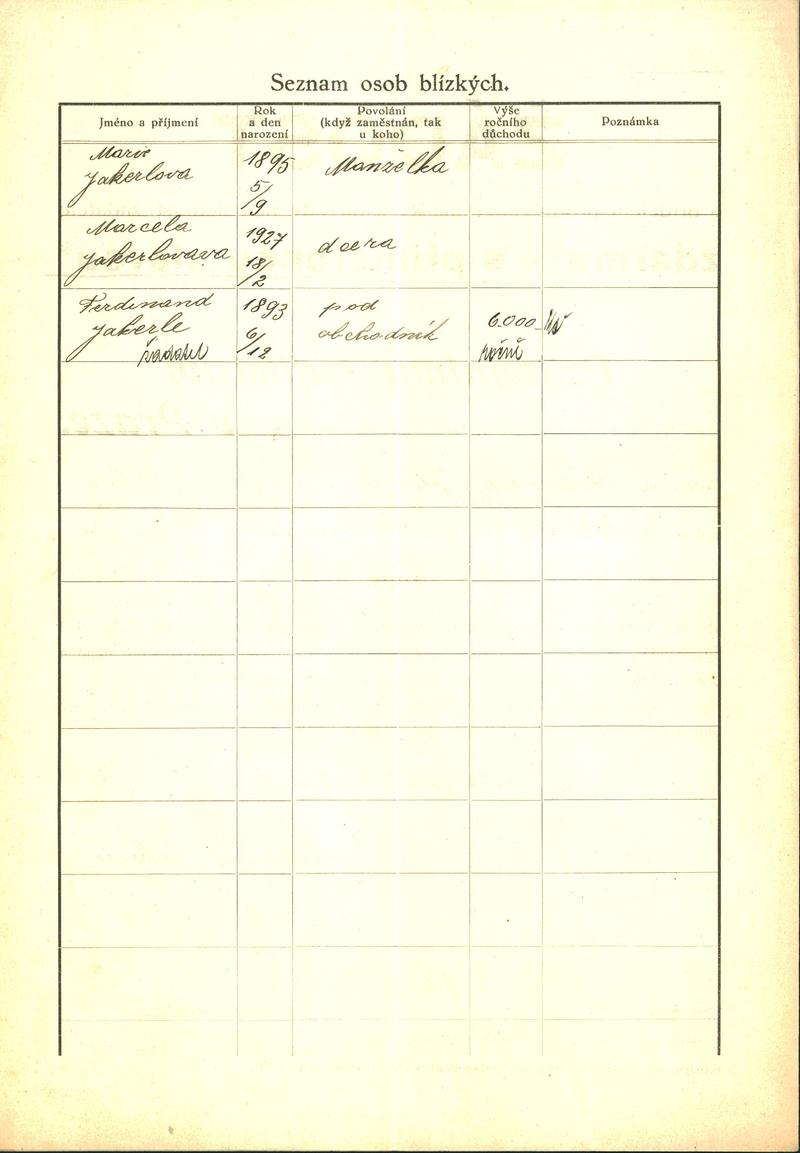 Seznam osob blízkých.
Jméno a příjmení
Rok
a den
narození
Povolání
(když zaměstnán, tak
u koho)
Výše
ročního
důchodu
Poznámka
Marie
Jakerlova
1895
5/9
Manželka
Marcela
Jakerlovava
1927
18/2
dcera
Ferdinand
Jakerle
žadatel
1893
6/12
pod
obchodník
6.000
ročně